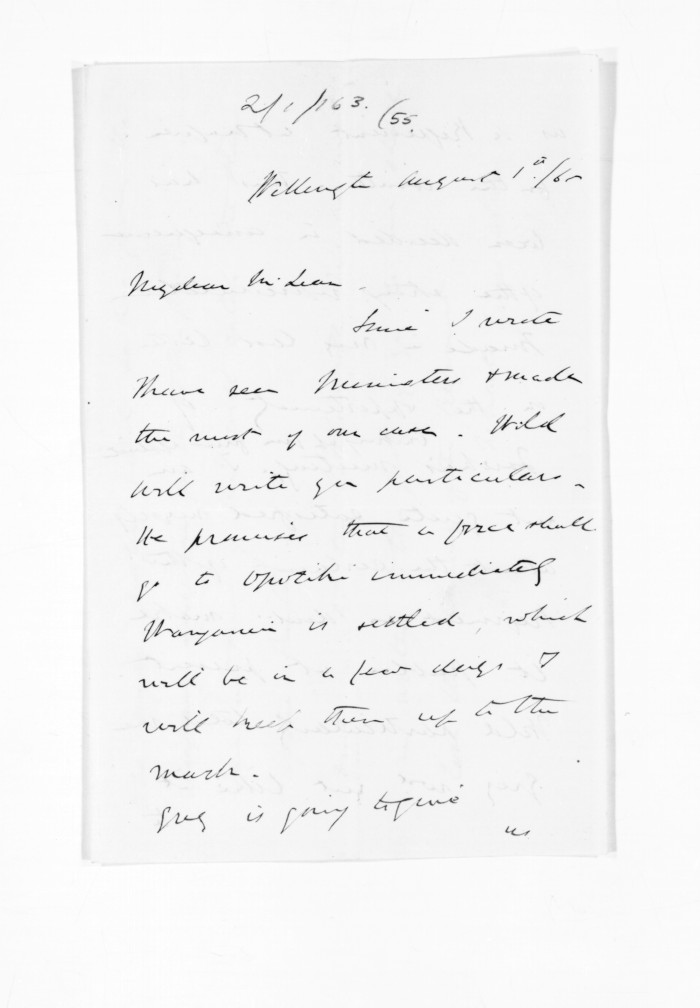 2/1/163. (55.
Wellington August 1st/65
My dear McLean.
Since I wrote
I have seen Ministers & made
the most of our case. Weld
will write you particulars.
He promises that a force shall
go to Opotiki immediately
Wanganui is settled, which
will be in a few days I
will keep them up to the
mark.
Grey is going to give
us